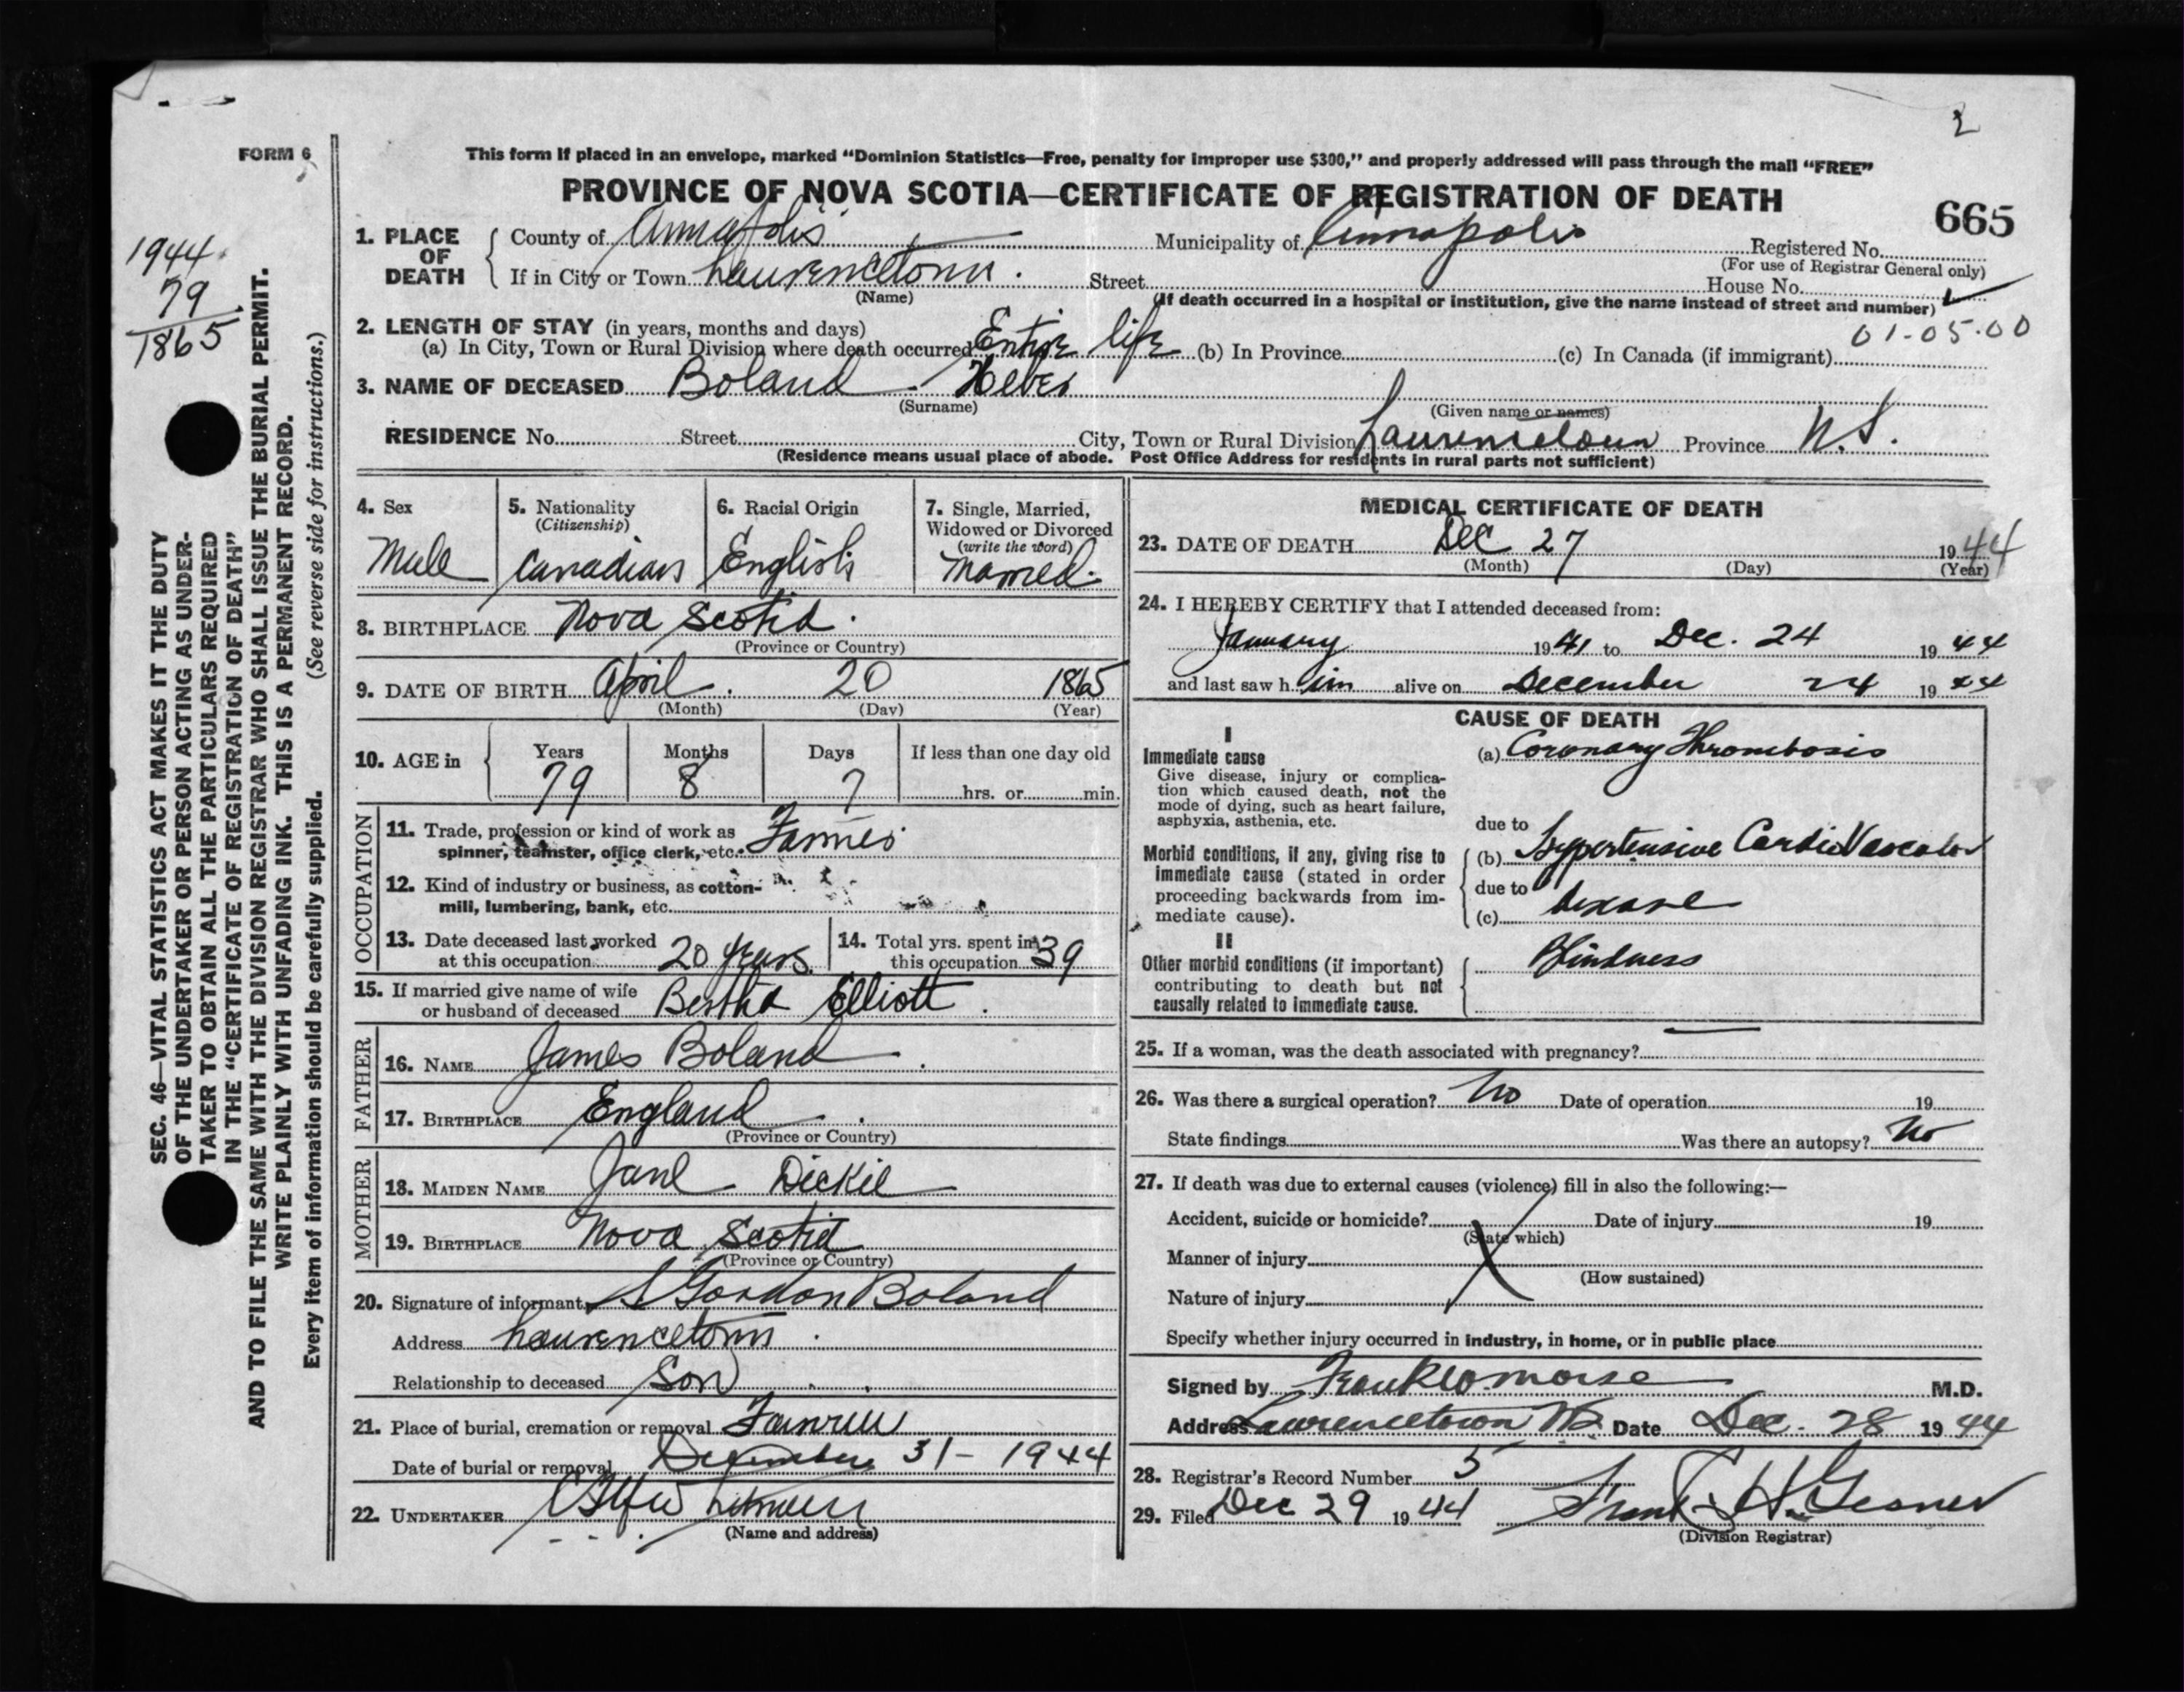 2
FORM 6
This form if placed in an envelope, marked “Dominion Statistics—Free, penalty for improper use $300,” and properly addressed will pass through the mail “FREE”
PROVINCE OF NOVA SCOTIA—CERTIFICATE OF REGISTRATION OF DEATH
665
1944
79
1865
SEC. 46—VITAL STATISTICS ACT MAKES IT THE DUTY
OF THE UNDERTAKER OR PERSON ACTING AS UNDER-
TAKER TO OBTAIN ALL THE PARTICULARS REQUIRED
IN THE “CERTIFICATE OF REGISTRATION OF DEATH”
AND TO FILE THE SAME WITH THE DIVISION REGISTRAR WHO SHALL ISSUE THE BURIAL PERMIT.
WRITE PLAINLY WITH UNFADING INK. THIS IS A PERMANENT RECORD.
Every item of information should be carefully supplied. (See reverse side for instructions.)
1. PLACE OF DEATH
County of Annapolis Municipality of Annapolis Registered No.
(For use of Registrar General only)
If in City or Town Lawrencetown. Street House No.
(Name) (If death occurred in a hospital or institution, give the name instead of street and number)
01-05-00
2. LENGTH OF STAY (in years, months and days)
(a) In City, Town or Rural Division where death occurred Entire life (b) In Province (c) In Canada (if immigrant)
3. NAME OF DECEASED Boland Heber
(Surname) (Given name or names)
RESIDENCE No. Street City, Town or Rural Division Lawrencetown Province N.S.
(Residence means usual place of abode. Post Office Address for residents in rural parts not sufficient)
4. Sex
Male
5. Nationality
(Citizenship)
Canadian
6. Racial Origin
English
7. Single, Married,
Widowed or Divorced
(write the word)
Married.
8. BIRTHPLACE Nova Scotia.
(Province or Country)
9. DATE OF BIRTH April 20 1865
(Month) (Day) (Year)
10. AGE in Years Months Days If less than one day old
79 8 7 hrs. or min.
OCCUPATION
11. Trade, profession or kind of work as
spinner, teamster, office clerk, etc. Farmer
12. Kind of industry or business, as cotton-
mill, lumbering, bank, etc.
13. Date deceased last worked
at this occupation 20 years
14. Total yrs. spent in
this occupation 39
15. If married give name of wife
or husband of deceased Bertha Elliott.
FATHER
16. NAME James Boland
17. BIRTHPLACE England
(Province or Country)
MOTHER
18. MAIDEN NAME Jane Dickie
19. BIRTHPLACE Nova Scotia
(Province or Country)
20. Signature of informant S Gordon Boland
Address Lawrencetown.
Relationship to deceased Son
21. Place of burial, cremation or removal
Date of burial or removal December 31 - 1944
22. UNDERTAKER
(Name and address)
MEDICAL CERTIFICATE OF DEATH
23. DATE OF DEATH Dec 27 1944
(Month) (Day) (Year)
24. I HEREBY CERTIFY that I attended deceased from:
January 1941 to Dec. 24 1944
and last saw him alive on December 24 1944
CAUSE OF DEATH
I
Immediate cause
Give disease, injury or complica-
tion which caused death, not the
mode of dying, such as heart failure,
asphyxia, asthenia, etc.
(a) Coronary Thrombosis
due to
Morbid conditions, if any, giving rise to
immediate cause (stated in order
proceeding backwards from im-
mediate cause).
(b) Hypertensive CardioVascular
due to
(c) disease
II
Other morbid conditions (if important)
contributing to death but not
causally related to immediate cause.
Blindness
25. If a woman, was the death associated with pregnancy?
26. Was there a surgical operation? No Date of operation 19
State findings Was there an autopsy? No
27. If death was due to external causes (violence) fill in also the following:—
Accident, suicide or homicide? Date of injury 19
(State which)
Manner of injury
(How sustained)
Nature of injury
Specify whether injury occurred in industry, in home, or in public place
Signed by Morse M.D.
Address Lawrencetown NS. Date Dec. 28 1944
28. Registrar's Record Number 5
29. Filed Dec 29 1944 Frank H. Gesner
(Division Registrar)